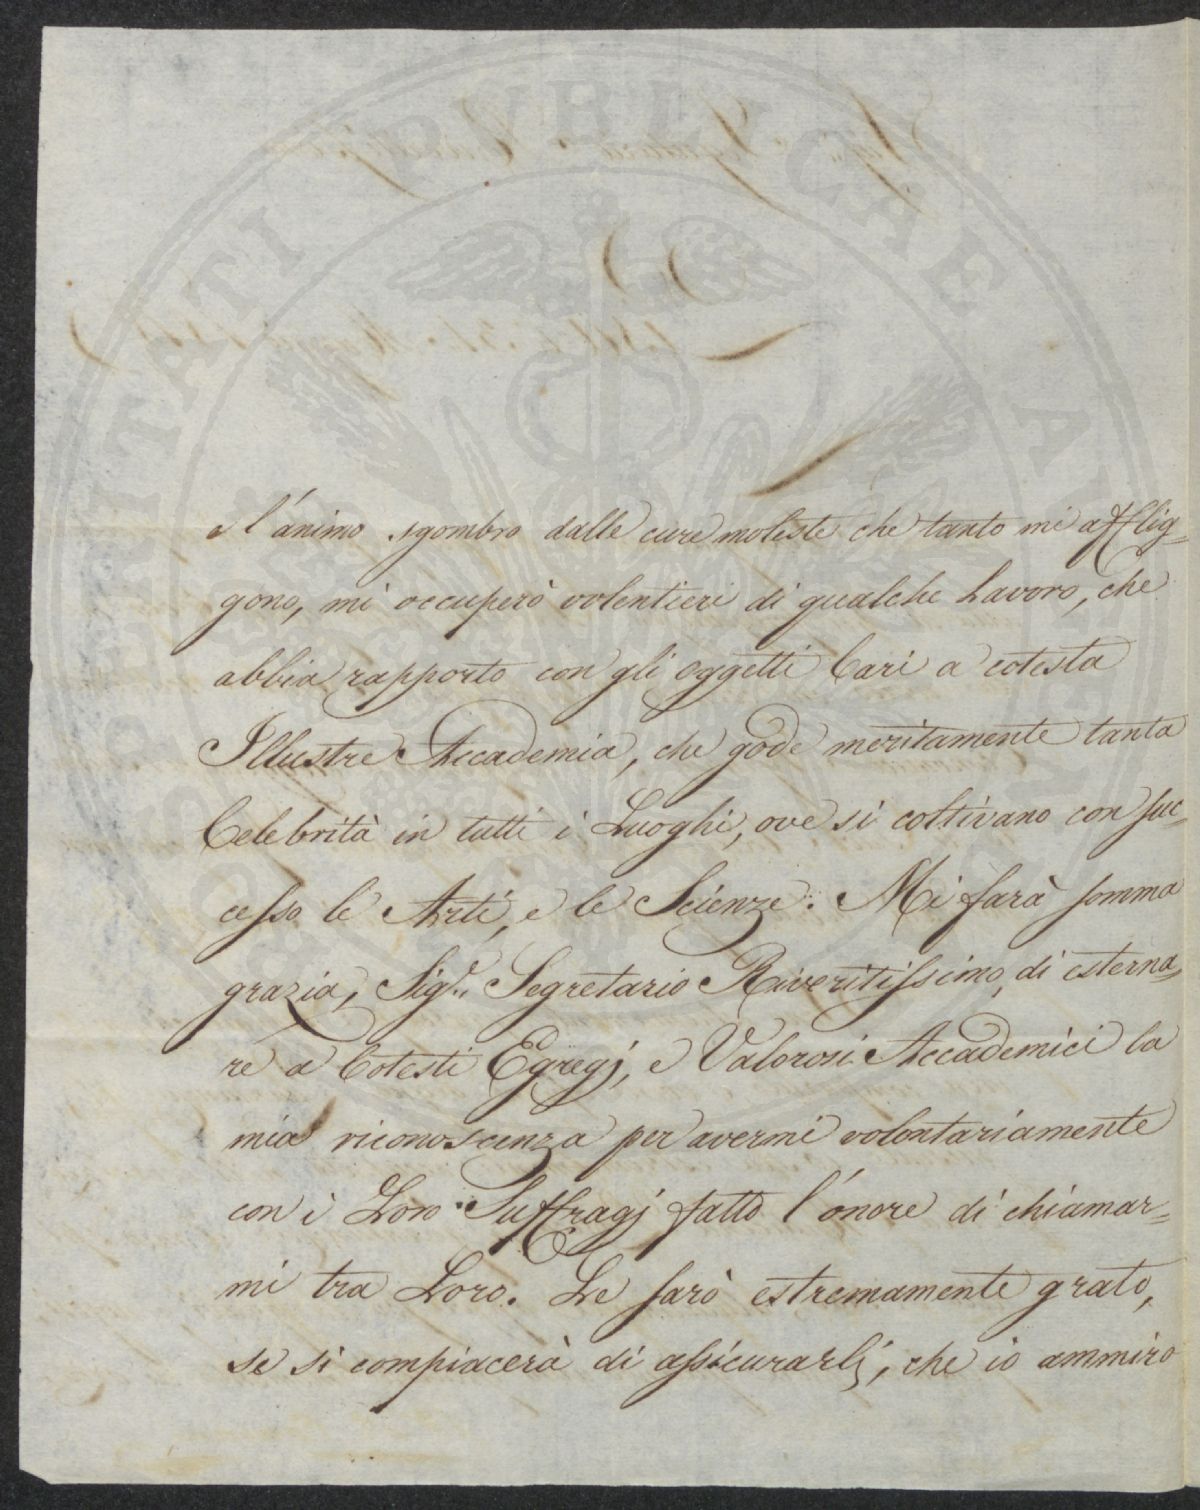 l'ánimo sgombro dalle cure moleste che tanto mi afflig=
gono, mi occuperò volentieri di qualche Lavoro, che
abbia rapporto con gli oggetti Cari a cotesta
Illustre Accademia, che gode meritamente tanta
Celebrità in tutti i Luoghi, ove si coltivano con suc=
cesso le Arti, e le Scienze. Mi farà somma
grazia, Sigr. Segretario Riveritissimo, di esterna=
re a Cotesti Egregj, e Valorosi Accademici la
mia riconoscenza per avermi volontariamente
con i Loro Suffragj fatto l'ónore di chiamar=
mi tra Loro. Le sarò estremamente grato,
se si compiacerà di assicurarlj, che io ammiro